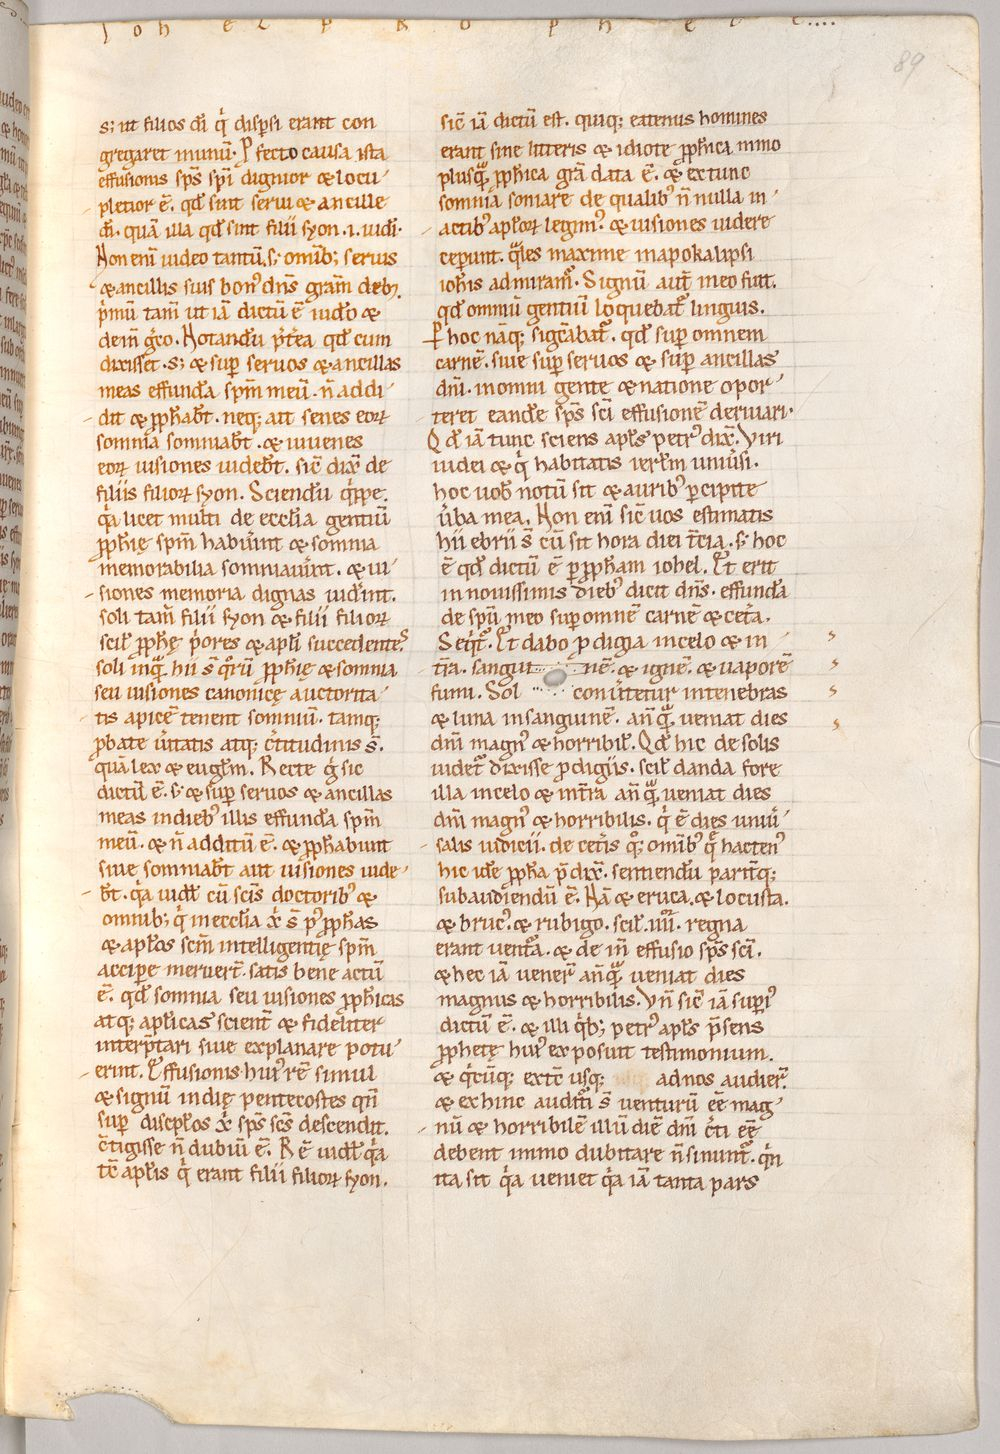 Johel propheta
89
s; ut filios dī q̇ dispsi erant con
gregaret in unū. Pfecto causa ista
effusionis sp̄s sp̄i dignior & locu
pletior ē. qđ sint serui & ancille
dī. quā illa qđ sint filii syon .i. iudi.
Non enī iudeo tantū. s; omīb; seruis
& ancillis suis bon' dn̄s grām deb;
p̄mū tam̄ ut iā dictū ē iudeo &
dein ġco. Notandū p̄tea qđ cum
dixisset .s; & sup seruos & ancillas
meas effundā sp̄m meū. n̄ addi
dit & pphabt̄. neq; aut senes eoꝝ
somnia somniabt̄. & iuuenes
eoꝝ uisiones uidebt̄. sic̄ dix̄ de
filiis filioꝝ syon. Sciendū q̇ppe.
q̇a licet multi de eccl̄ia gentiū
pphię sp̄m habuīnt & somnia
memorabilia somniauīnt. & ui
siones memoria dignas uidīnt.
soli tam̄ filii syon & filii filioꝝ
scil̄ pphę p̄ores & apl̄i succedentes
soli inqꝫ hii s̄ q̇rū pphię & somnia
seu uisiones canonicę auctorita
tis apicē tenent somniū. tamq;
pbate ūitatis atq; c̄titudinis s̄.
quā lex & eugl̄m. Recte ġ sic
dictū ē. s; & sup seruos & ancillas
meas in dieb' illis effundā sp̄m
meū. & n̄ additū ē. & pphabunt
siue somniabt̄ aut uisiones uide
bt̄. q̇a uidel̄ cū scīs doctorib' &
omnib; q̇ in eccl̄ia x̄ s̄ p' pphas
& apl̄os scd̄m intelligentię sp̄m
accipe meruer̄t. satis bene actū
ē. qđ somnia seu uisiones pphicas
atq; apl̄icas scient̄ & fideliter
interp̄tari siue explanare potu
erint. Effusionis hui' rē simul
& signū in dię pentecostes qn̄
sup discpl̄os x̄ sp̄s sc̄s descendit.
c̄tigisse n̄ dubiū ē. R ē uidel̄ q̇a
tc̄ apl̄is q̇ erant filii filioꝝ syon.
sic̄ iā dictū est. quiq; eatenus homines
erant sine litteris & idiote pphica immo
plusqꝫ pphica grā data ē. & ex tunc
somnia somiare de qualib' n̄ nulla in
actib' apl̄oꝝ legim'. & uisiones uidere
ceperunt. q̄les maxime in apokalipsi
ioh̄is admiram̄. Signū aut̄ in eo fuit.
qđ omniū gentiū loquebat̄ linguis.
P hoc nāq; sigcābat̄. qđ sup omnem
carnē. siue sup seruos & sup ancillas
dn̄i. in omni gente & natione opor
teret eandē sp̄s sc̄i effusionē deriuari.
Qđ iā tunc sciens apl̄s petr' dix̄. Viri
iudei & q̇ habitatis ierl̄m uniūsi.
hoc uob̄ notū sit & aurib' percipite
ūba mea. Non enī sic̄ uos estimatis
hii ebrii s̄ cū sit hora diei tc̄ia. s; hoc
ē qđ dictū ē p ppham iohel. Et erit
in nouissimis dieb' dicit dn̄s. effundā
de spū meo sup omnē carnē & cet̄a.
Seqt̄. Et dabo pdigia in celo & in
t̄ra. sangui nē. & ignē. & uaporē
fumi. Sol conūtetur in tenebras
& luna in sanguinē. an̄qꝫ ueniat dies
dn̄i magn' & horribil'. Qđ hic de solis
uidet̄ dixisse pdigiis. scil̄ danda fore
illa in celo & in t̄ra an̄qꝫ ueniat dies
dn̄i magn' & horribilis. q̇ ē dies uniū
salis iudicii. de cet̄is q;. omīb' q̄ hacten'
hic idē ppha p̄dix̄. sentiendū parit̄q;
subaudiendū ē. Nā & eruca. & locusta.
& bruc'. & rubigo. scil̄ .iiii. regna
erant uent̄a. & de in̄ effusio sp̄s sc̄i.
& hec iā uener̄ an̄qꝫ ueniat dies
magnus & horribilis. Vn̄ sic̄ iā supi'
dictū ē. & illi q̇b; petr' apl̄s p̄sens
pphetę hui' exposuit testimonium.
& q̇cūq; ex tc̄ usq; ad nos audier̄.
& ex hinc audit̄i s̄ uenturū eē mag
nū & horribilē illū diē dn̄i c̄ti eē
debent immo dubitare n̄ sinunt̄. q̇n
ita sit q̇a ueniet q̇a iā tanta pars